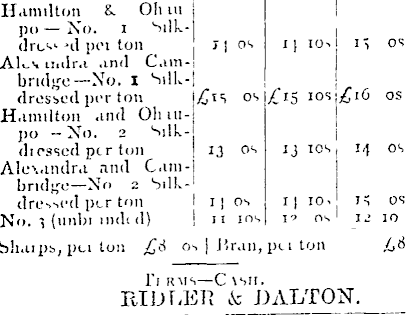 Hamilton & Ohau-
po — No. 1 Silk-
dressed per ton 14 0s 14 10s 15 0s
Alexandra and Cam-
bridge—No. 1 Silk-
dressed per ton £15 0s £15 10s £16 0s
Hamilton and Ohau-
po - No. 2 Silk-
dressed per ton 13 0s 13 10s 14 0s
Alexandra and Cam-
bridge—No 2 Silk-
dressed per ton 14 0s 14 10s 15 0s
No. 3 (unbranded) 11 10s 12 0s 12 10
Sharps, per ton £8 0s | Bran, per ton £8
TERMS—CASH.
RIDLER & DALTON.